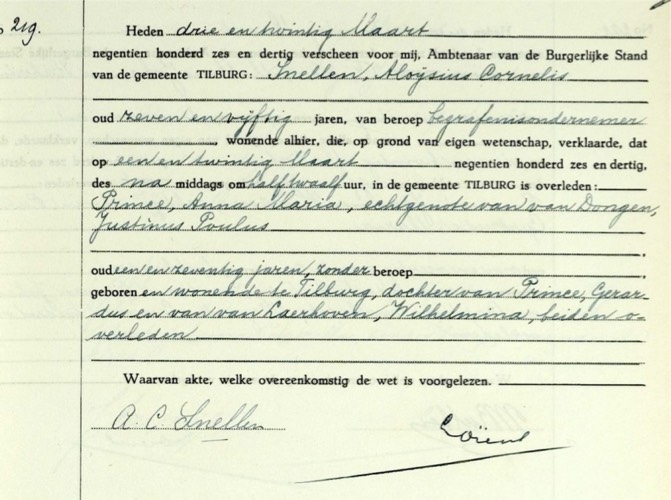 219.
Heden drie en twintig Maart
negentien honderd zes en dertig verscheen voor mij, Ambtenaar van de Burgerlijke Stand
van de gemeente TILBURG: Snellen, Aloÿsius Cornelis
oud zeven en vijftig jaren, van beroep begrafenisondernemer
, wonende alhier, die, op grond van eigen wetenschap, verklaarde, dat
op een en twintig Maart negentien honderd zes en dertig,
des na middags om half twaalf uur, in de gemeente TILBURG is overleden:
Prince, Anna Maria, echtgenote van van Dongen,
Justinus Poulus
oud een en zeventig jaren, zonder beroep
geboren en wonende te Tilburg, dochter van Prince, Gerar-
dus en van van Laerhoven, Wilhelmina, beiden o-
verleden
Waarvan akte, welke overeenkomstig de wet is voorgelezen.
A. C. Snellen